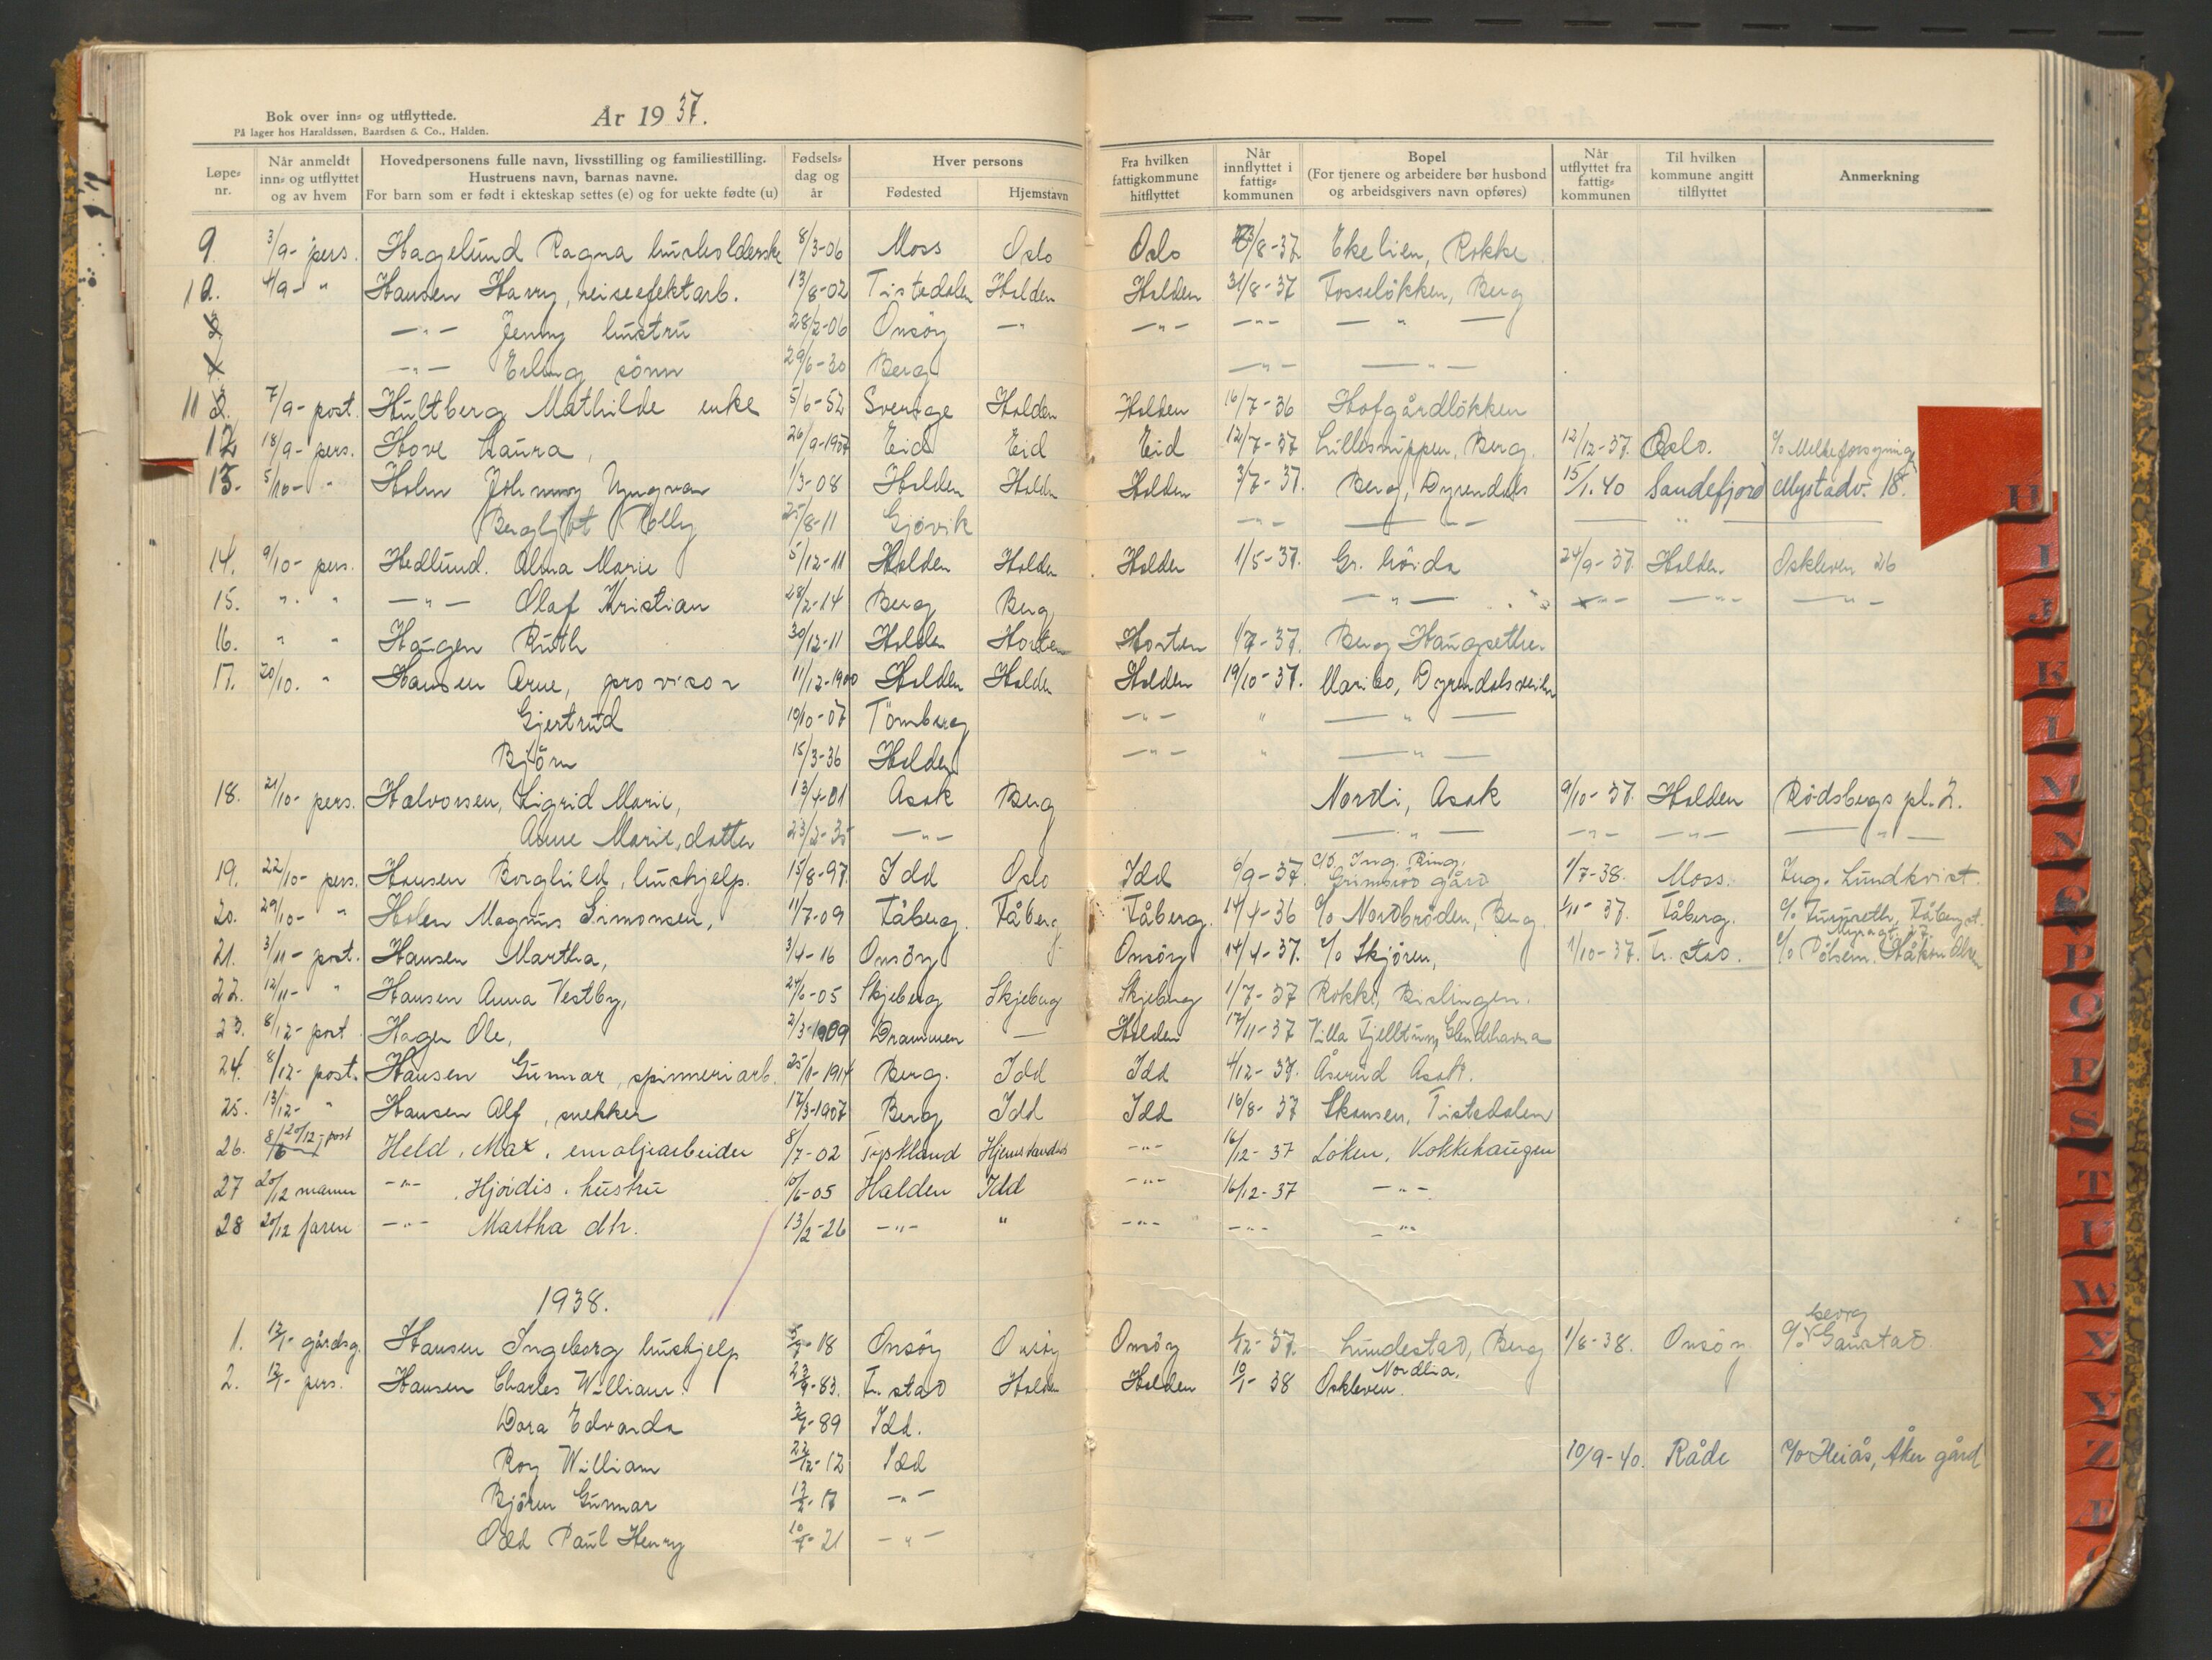 Bok over inn- og utflyttede.
På lager hos Haraldssøn, Baardsen & Co., Halden.
År 1937.
Løpe-nr. Når anmeldt inn- og utflyttet og av hvem Hovedpersonens fulle navn, livsstilling og familiestilling. Hustruens navn, barnas navne. For barn som er født i ekteskap settes (e) og for uekte fødte (u) Fødsels-dag og år Hver persons Fødested Hjemstavn Fra hvilken fattigkommune hitflyttet Når innflyttet i fattig-kommunen Bopel (For tjenere og arbeidere bør husbond og arbeidsgivers navn opføres) Når utflyttet fra fattig-kommunen Til hvilken kommune angitt tilflyttet Anmerkning
9. 3/9- pers. Hagelund Ragna husholderske 8/3-06 Moss Oslo Oslo /8-37 Ekelien, Rokke
10. 4/9- " Hansen Harry, reiseefektarb. 13/8-02 Tistedalen Halden Halden 31/8-37 Fosseløkken, Berg
—"— Jenny hustru 28/2-06 Onsöy —"— —"— —"— — " —
—"— Erling sönn 29/6-30 Berg —"— — " —
11 7/9- post. Hultberg Mathilde enke 5/6-52 Sverige Halden Halden 16/7-36 Hofgårdlökken
12 18/9- pers. Hove Laura, 26/9-1907 Eid Eid Eid 12/7-37 Lillesnippen, Berg. 12/12-37. Oslo. c/o Melkeforsyning
13. 5/10- " Holm Johnny Yngvar 1/3-08 Halden Halden Halden 3/7-37. Berg, Dyrendals 15/1.40 Sandefjord Mystadv. 18.
Bergljot Elly 25/8-11 Gjøvik —"— — " — — " —
14. 9/10- pers. Hedlund. Alma Marie 5/12-11 Halden Halden Halden 1/5-37. Gr. höida 24/9-37. Halden. Oskleven 26
15. " " —"— Olaf Kristian 28/2-14 Berg Berg —"— —"— —"— —"—
16. " " Haugen Ruth 30/12-11 Halden Horten Horten 1/7-37. Berg Haugsether
17. 20/10. " Hansen Arne, provisor 11/12-1900 Halden Halden Halden 19/10-37. Maribo, Dyrendalsveien
Gjertrud 19/10-07 Tömberg —"— " — " —
Björn 15/3-36 Halden —"— " — " —
18. 21/10- pers. Halvorsen, Sigrid Marie, 13/4-01 Asak Berg Nordi, Asak 9/10-37. Halden Rödsbergs pl. 2.
Anne Marie, datter 23/2-35 —"— — " — —"— —"— — " —
19. 22/10- pers. Hansen Borghild, hushjelp. 15/8-97. Idd Oslo Idd 6/9-37. c/o Ing. Ring, Grimsrød gård 1/7-38. Moss. Ing. Lundkvist.
20. 29/10- " Holen Magnus Simonsen, 11/7-09 Fåberg. Fåberg Fåberg. 14/4-36 c/o Nordbröden, Berg. 1/11-37. Fåberg. c/o Fåberg st.
21. 3/11- post. Hansen Martha, 3/4-16 Onsöy Onsöy 14/4-37. c/o Skjören, 1/10-37. Fr. stad. c/o Håkon Olsen
22. 12/11- " Hansen Anna Vestby, 24/6-05 Skjeberg Skjeberg Skjeberg 1/7-37 Rokke, Bislingen.
23. 8/12- post Hagen Ole, 2/3-1909 Drammen — Halden 17/11-37 Villa Fjelltun,
24. 8/12- post. Hansen Gunnar, spinneriarb. 25/11-1914 Berg. Idd Idd 4/12-37. Åserud Asak.
25. 13/12- " Hansen Alf, snekker 17/3-1907 Berg Idd Idd 16/8-37 Skansen, Tistedalen
26. 20/12-post Held, Max, emaljearbeider 8/7-02 Tyskland Hjemstavnsløs —"— 16/12-37 Løken, Kokkehaugen
27 20/12 mannen —"— Hjørdis, hustru 10/6-05 Halden Idd —"— 16/12-37 —"—
28 20/12 faren —"— Martha dtr. 13/2-26 —"— " —"— —"— —"—
1938.
1. 12/1- gårdsg. Hansen Ingeborg hushjelp -18 Onsöy Onsöy Onsöy 1/12-37. Lundestad, Berg 1/8-38. Onsöy c/o Georg Gaustad
2. 12/1- pers. Hansen Charles William. 23/9-83. Fr. stad Halden Halden 10/1-38 Oskleven. Nordlia.
Dora Edvarda -89 Idd.
Roy William 22/12-12 Idd 10/9-40. Råde c/o Heiås, Åker gård
Björn Gunnar 12/2-17 —"—
Odd Paul Henry -21 —"—
H
I
J
K
L
M
N
O
P
Q
R
S
T
U
W
X
Y
Z
Æ